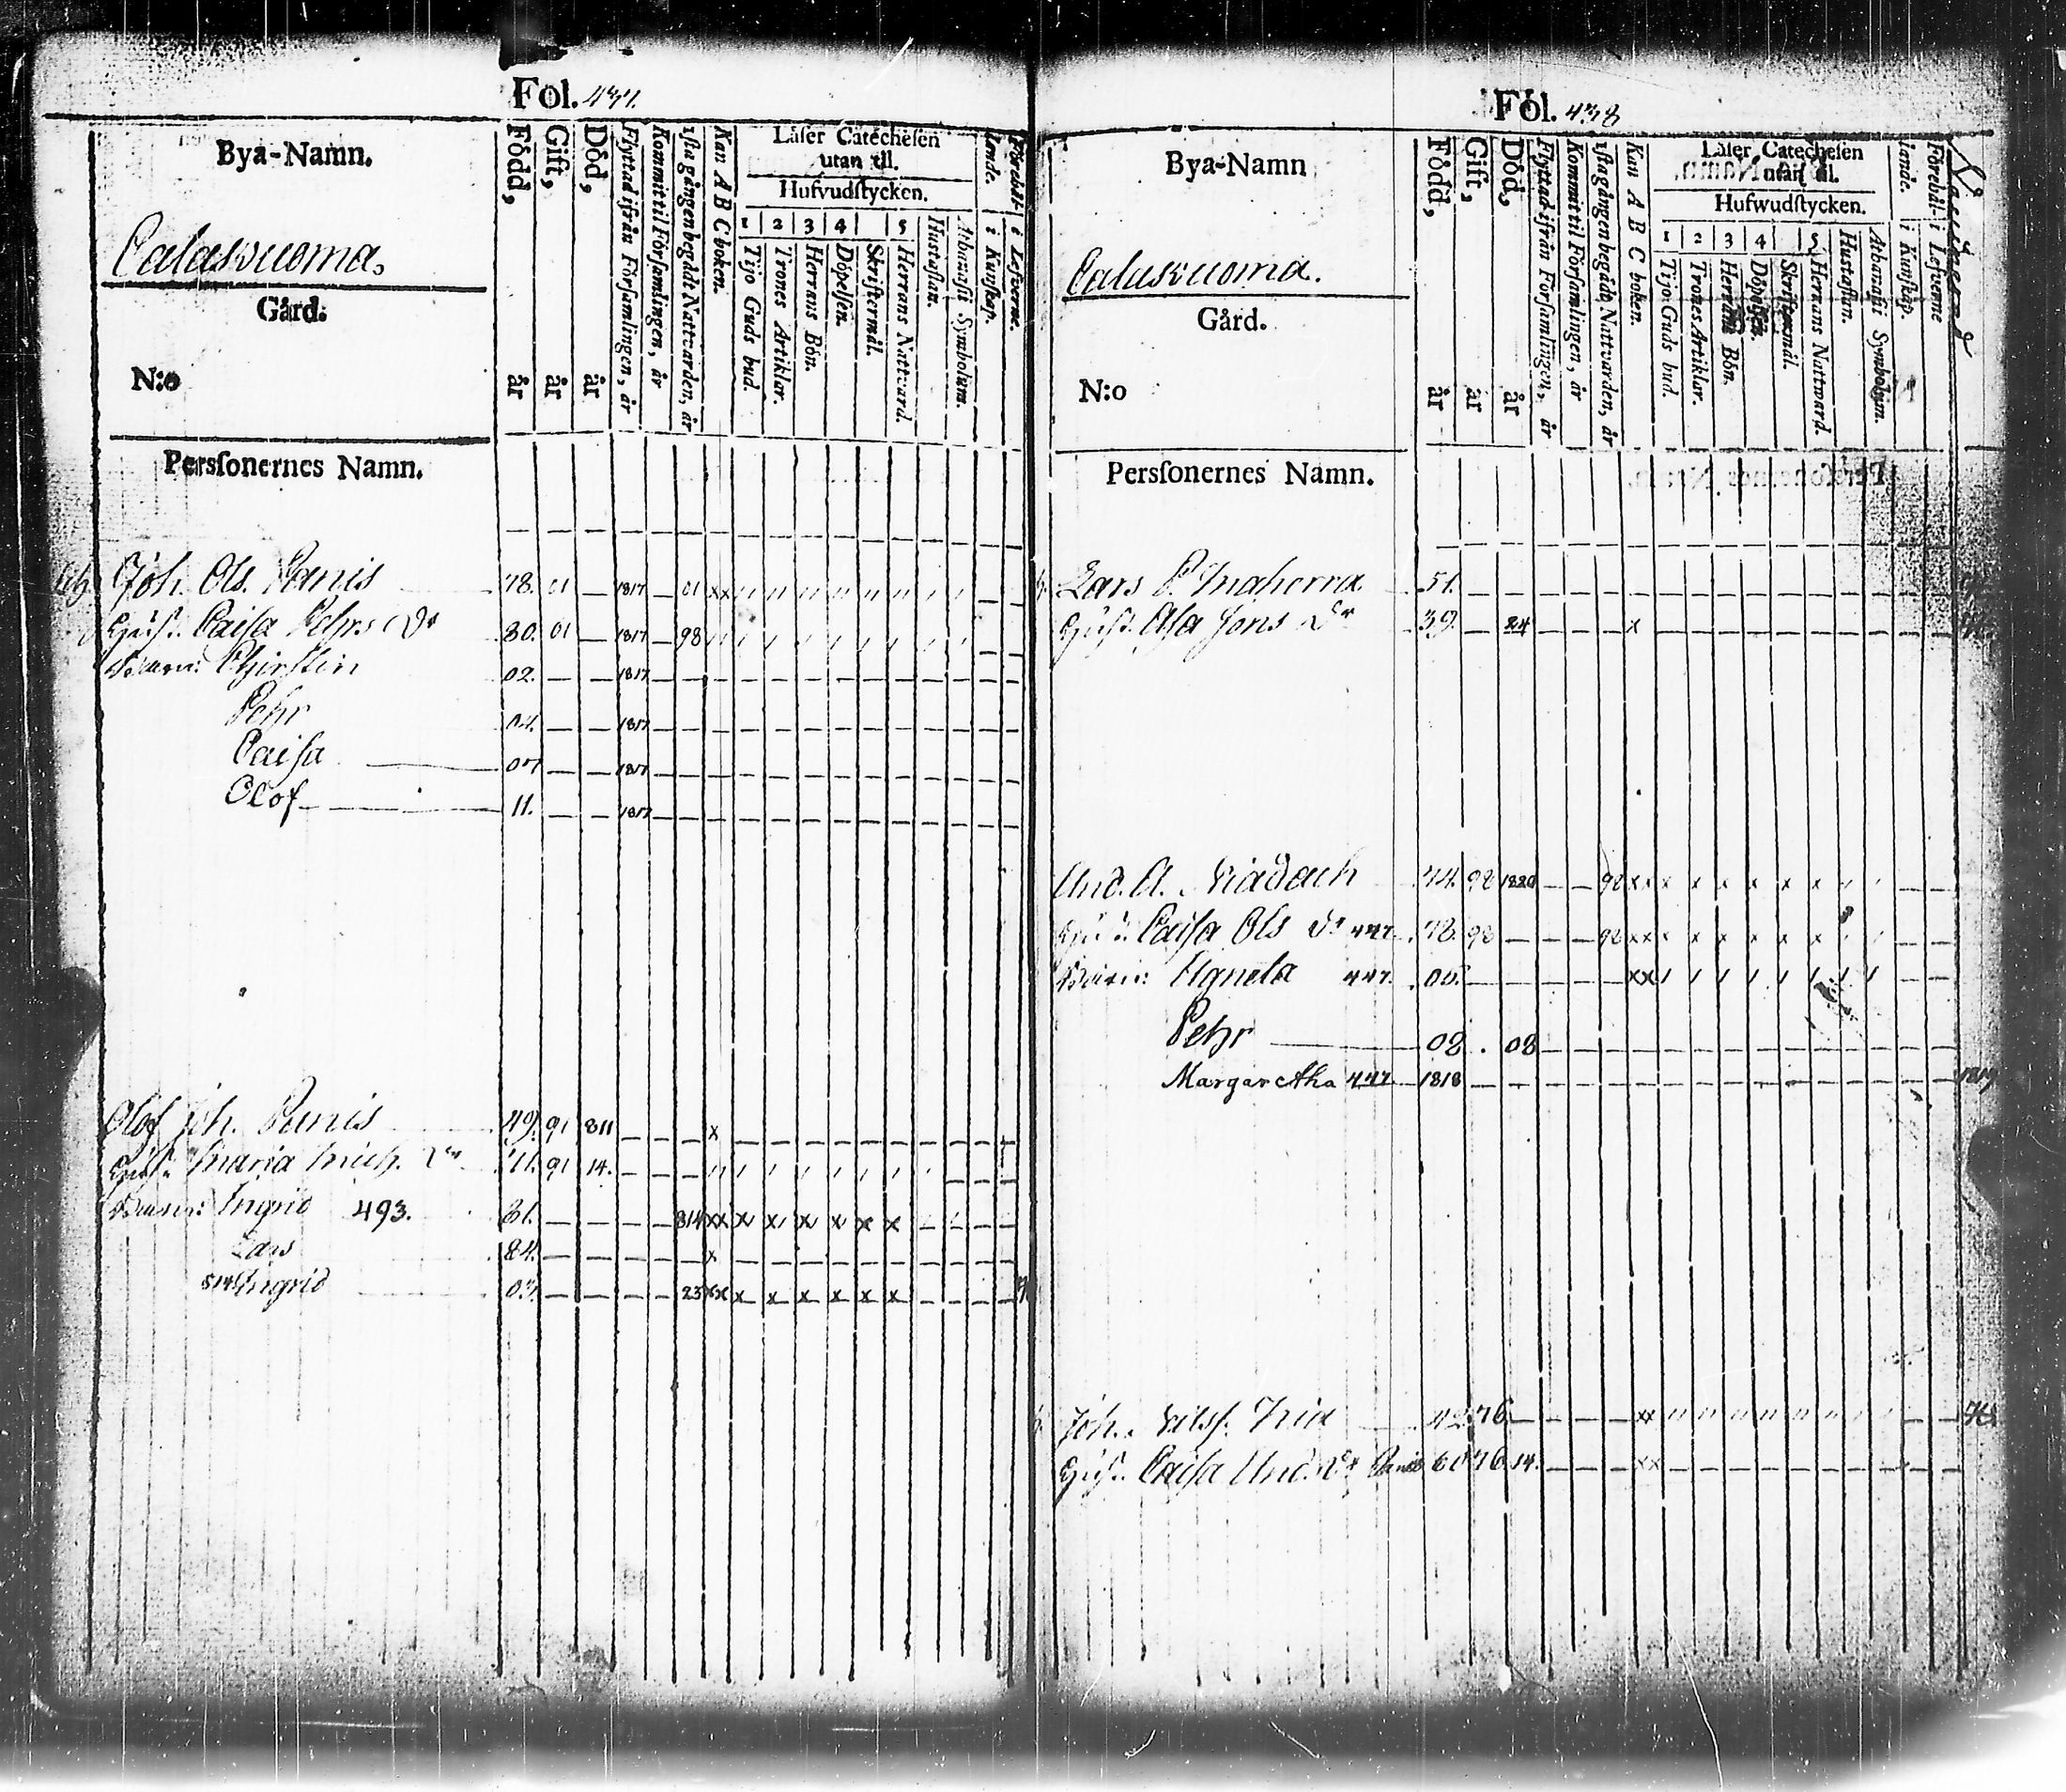 Fol. 437.
Bya-Namn.
Calasvuoma.
Gård:
N:o
Född, år
Gift, år
Död, år
Flyttad ifrån Församlingen, år
Kommit til Församlingen, år
1sta gången begådt Nattvarden, år
Kan A B C boken.
Låser Catechesen
utan til.
Hufvudstycken.
1 2 3 4 5
Tijo Guds bud.
Trones Artiklar.
Herrans Bön.
Döpelsen.
Skriftermål.
Herrans Nattvard.
Hustaflan.
Athanasii Symbolum.
Förehål- i Lefverne.
lande. i Kunskap.
Perssonernes Namn.
Joh. Ols. Panis 78. 01 — 1817 — 01 xx
Hust. Caisa Pehrs Dr 80. 01 — 1817 — 98
Barn: Chirstin 02. — — 1817
Pehr 04. — — 1817
Caisa 07 — — 1817
Olof 11. — — 1817
Olof Joh. Panis 49. 91 811 — — — x
Hust. Maria Mich. Dr 91 14. — —
Barn: Ingrid 493. 81. — — — — 814 xx x x x x x x
Lars 84. — — — — — x
Ingrid 03. — — — — 23 xx x x x x x x
Fol. 438
Bya-Namn
Calasvuoma.
Gård.
N:o
Född, år
Gift, år
Död, år
Flyttad ifrån Församlingen, år
Kommit til Församlingen, år
1sta gången begådt Nattvarden, år
Kan A B C boken.
Låser Catechesen
utan til.
Hufwudstycken.
1 2 3 4 5
Tijo Guds bud.
Trones Artiklar.
Herrans Bön.
Döpelsen.
Skriftermål.
Herrans Natward.
Hustaflan.
Athanasii Symbolum.
Förehål- i Lefverne
lande. i Kunskap.
Perssonernes Namn.
Lars P. Inaherra 51.
Hust. Asa Jons Dr 39. — 24 — — — x
And. A. Niadach 74. 98 1820 — — 98 xx x x x x x x
Hust. Caisa Ols Dr 447. 78. 98 — — — 98 xx x x x x x
Barn: Agneta 447. 05. — — — — — xx
Pehr 08 . 08
Margaretha 447. 1818
Joh. Nilss. Tria 42. 76. — — — — xx
Hust. Caisa And. Dr Panis 60 76. 14. — — — xx